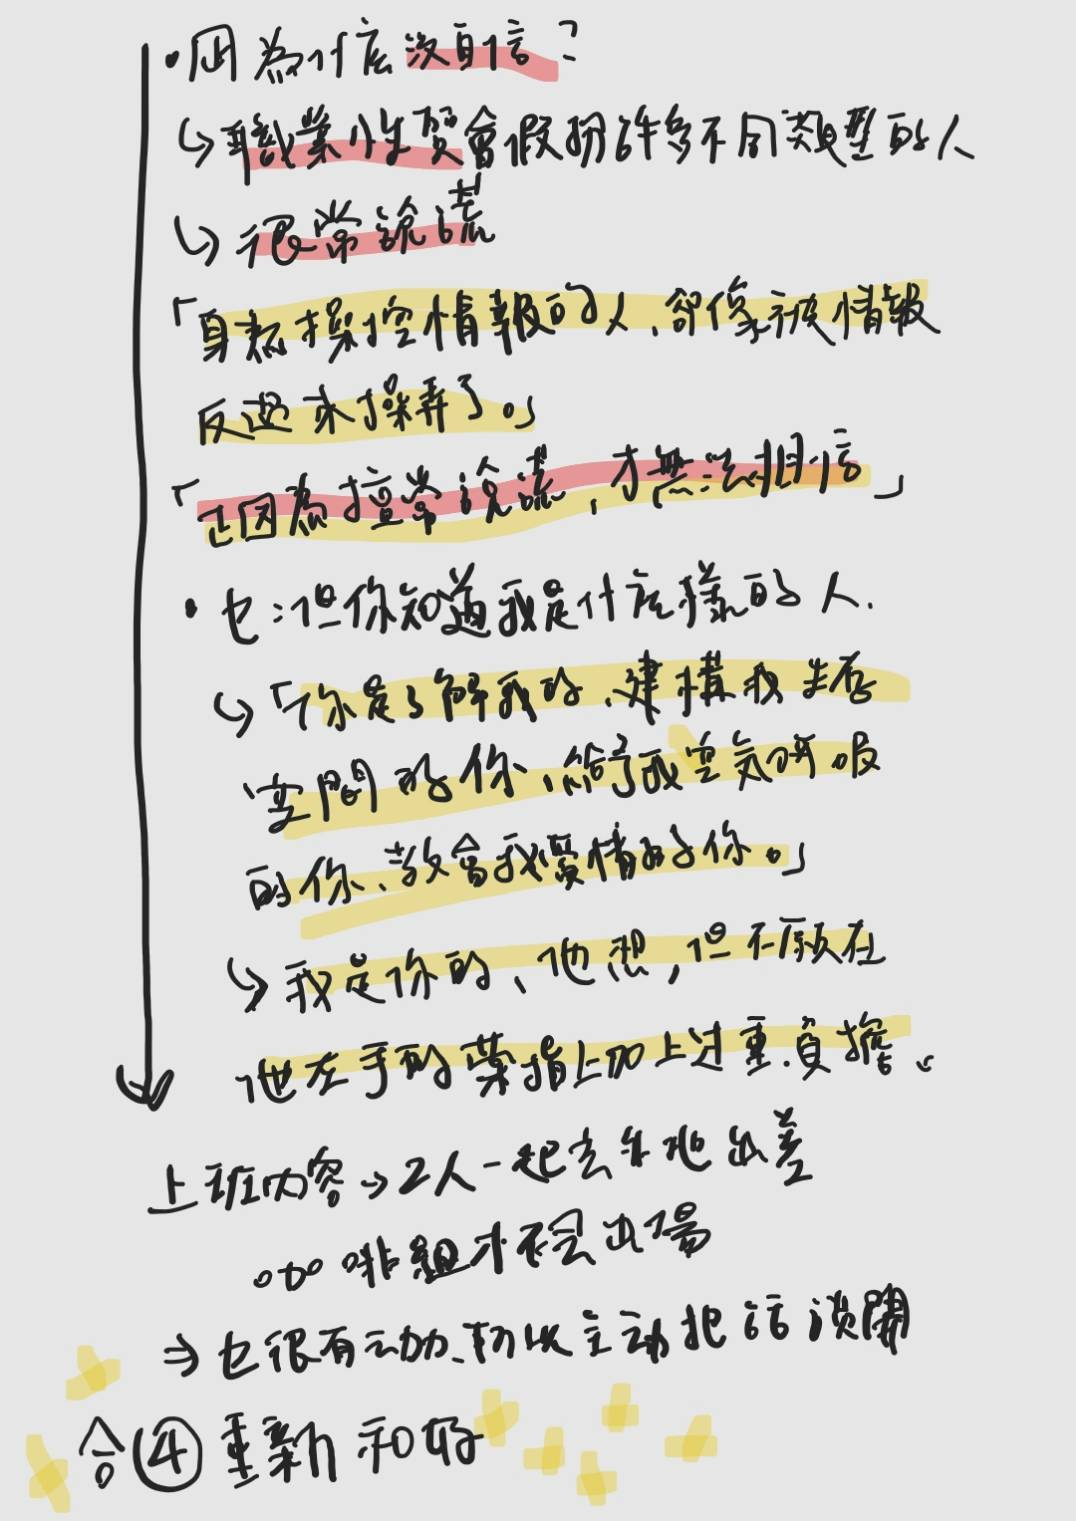 • 因為什広沒自信？
↳ 職業性質會假扮許多不同類型的人
↳ 很常說謊
「身為操控情報的人、卻像被情報
反過來操弄了。」
「正因為擅常說謊，才無法相信」
• 也：但你知道我是什広樣的人.
↳「你是了解我的、建構我生存
空間的你、給了我空氣呼吸
的你、教會我愛情的你。」
↳ 我是你的、他想，但不願在
他左手的葉指上加上過重負擔。
上班內容→2人一起去外地出差
∴咖啡組才不會出場
⇒也很有云加、所以主動把話談開
合④重新和好